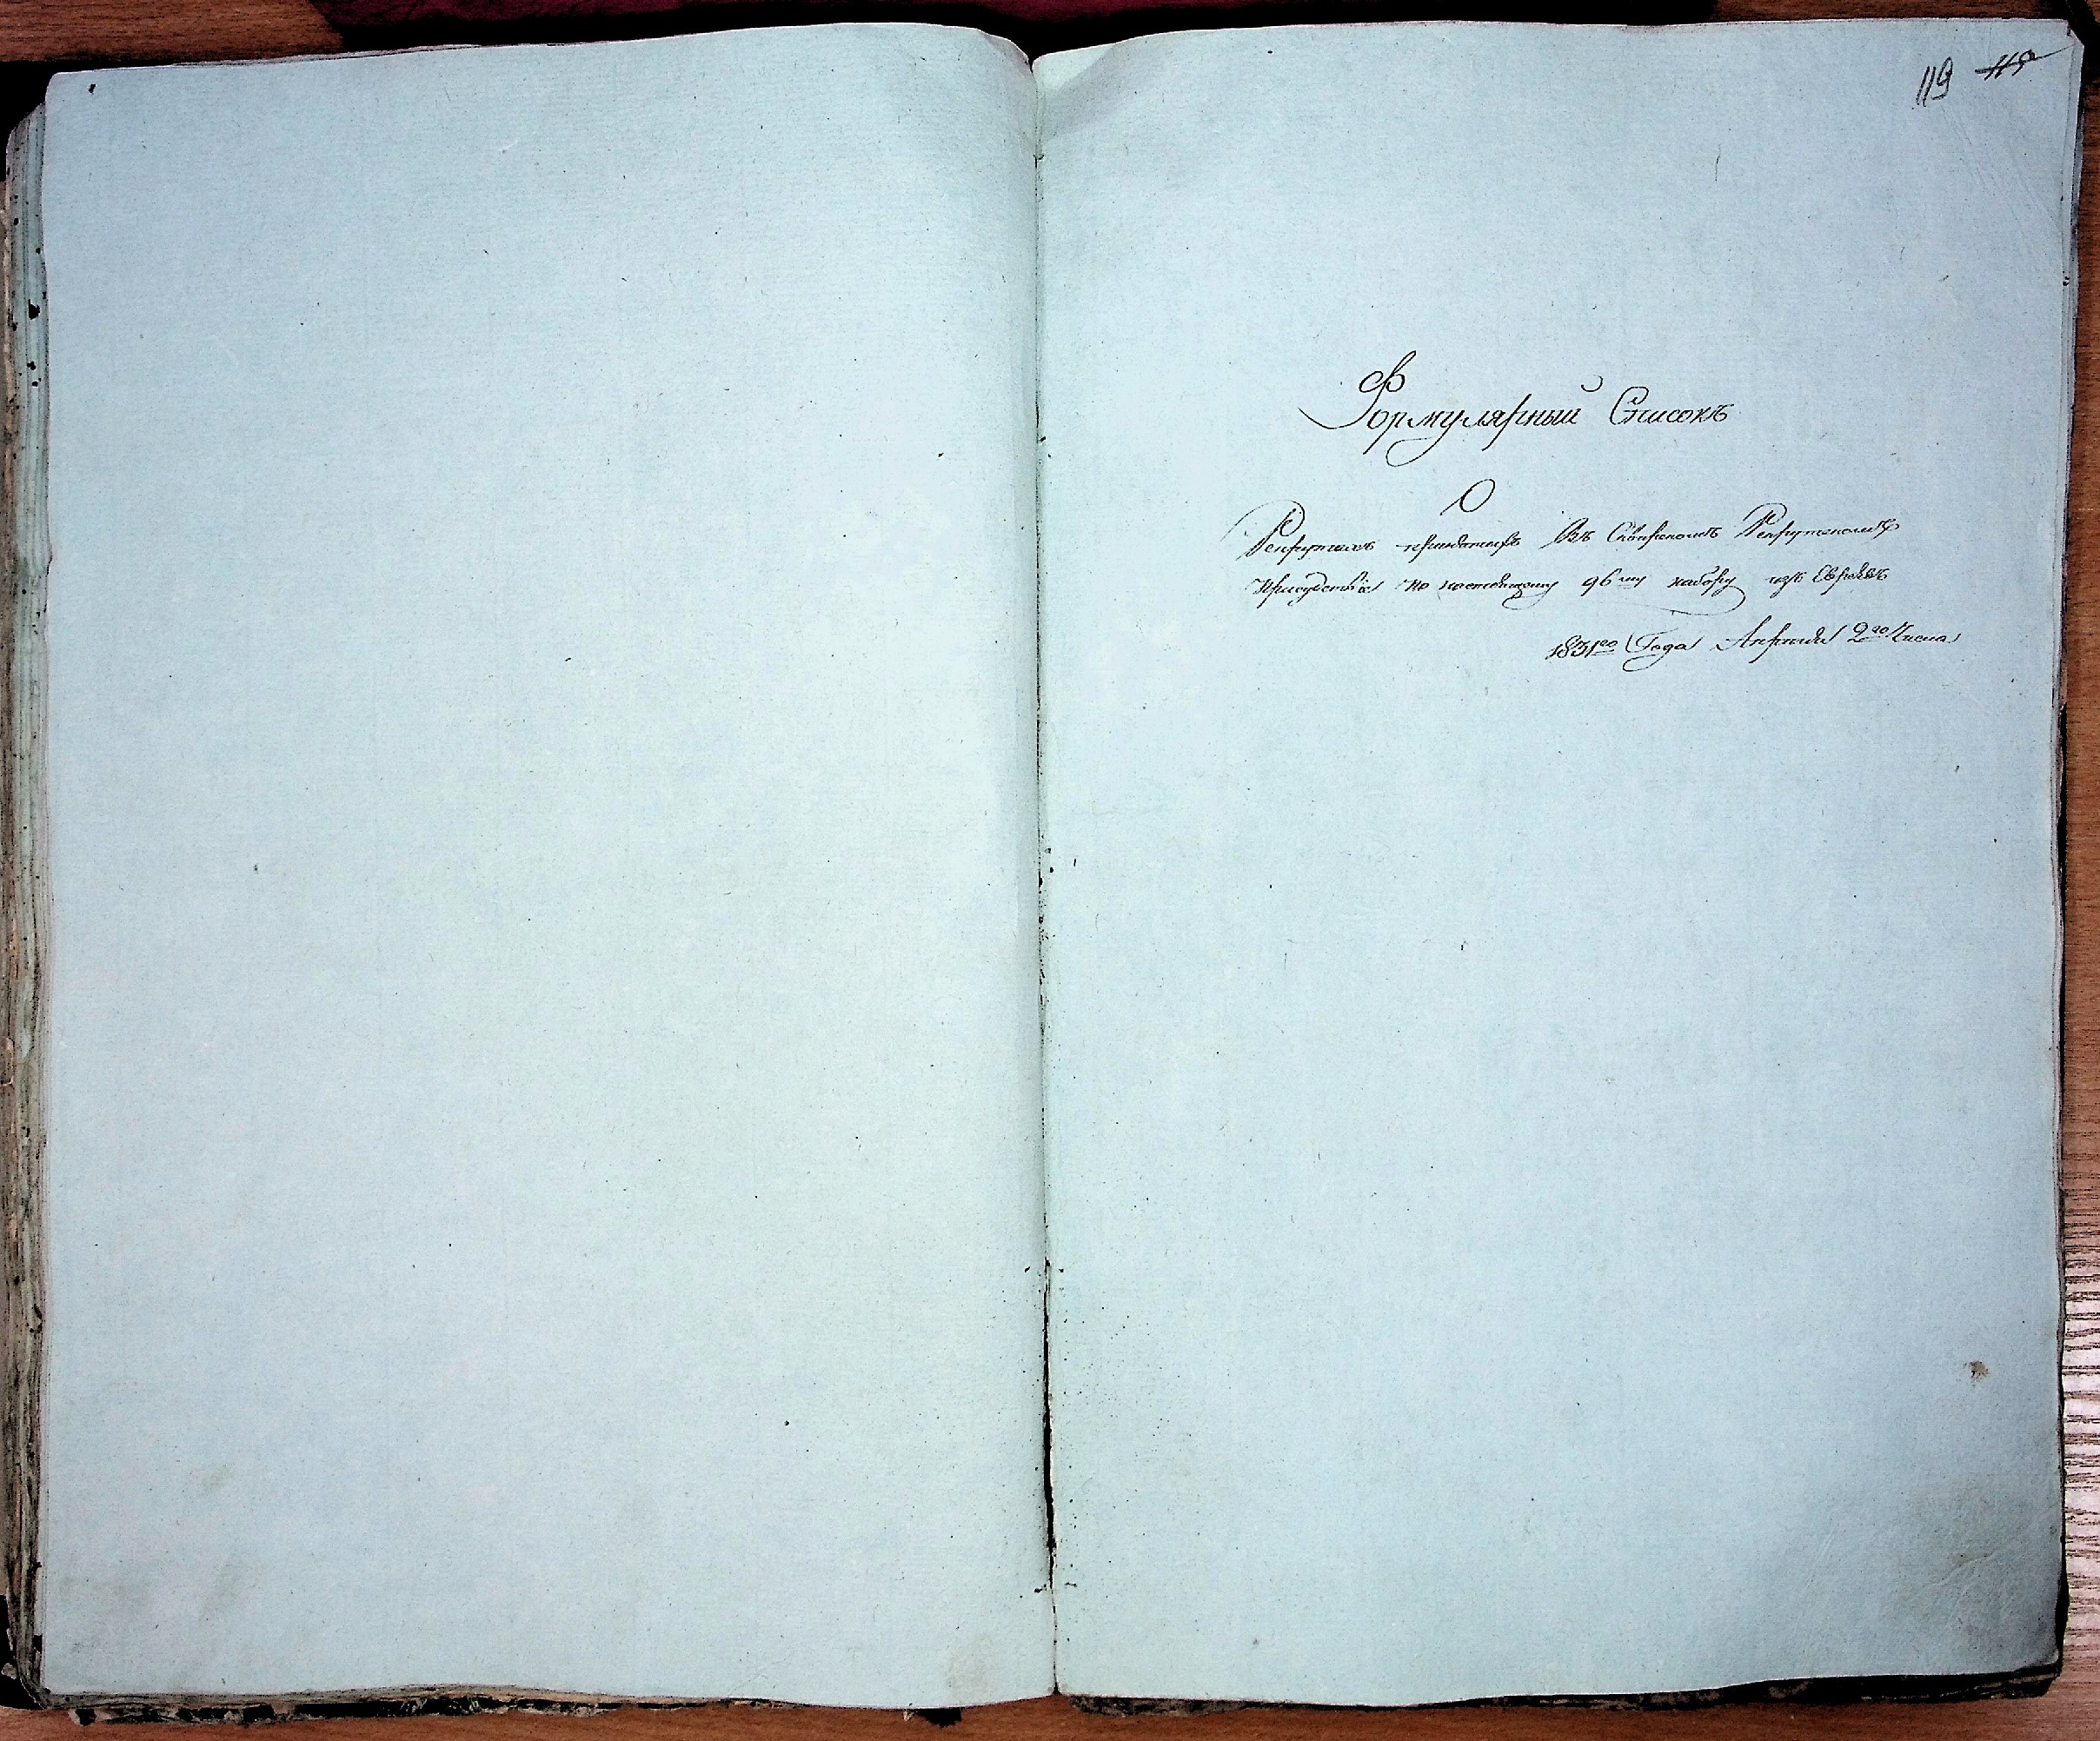 119 115
Формулярный Списокъ
О
Рекрутахъ принятыхъ Въ Сквирскомъ Рекрутскомъ
Присудствіи по настоящему 96му набору изъ Евреевъ
1831го Года Апреля 2го Числа